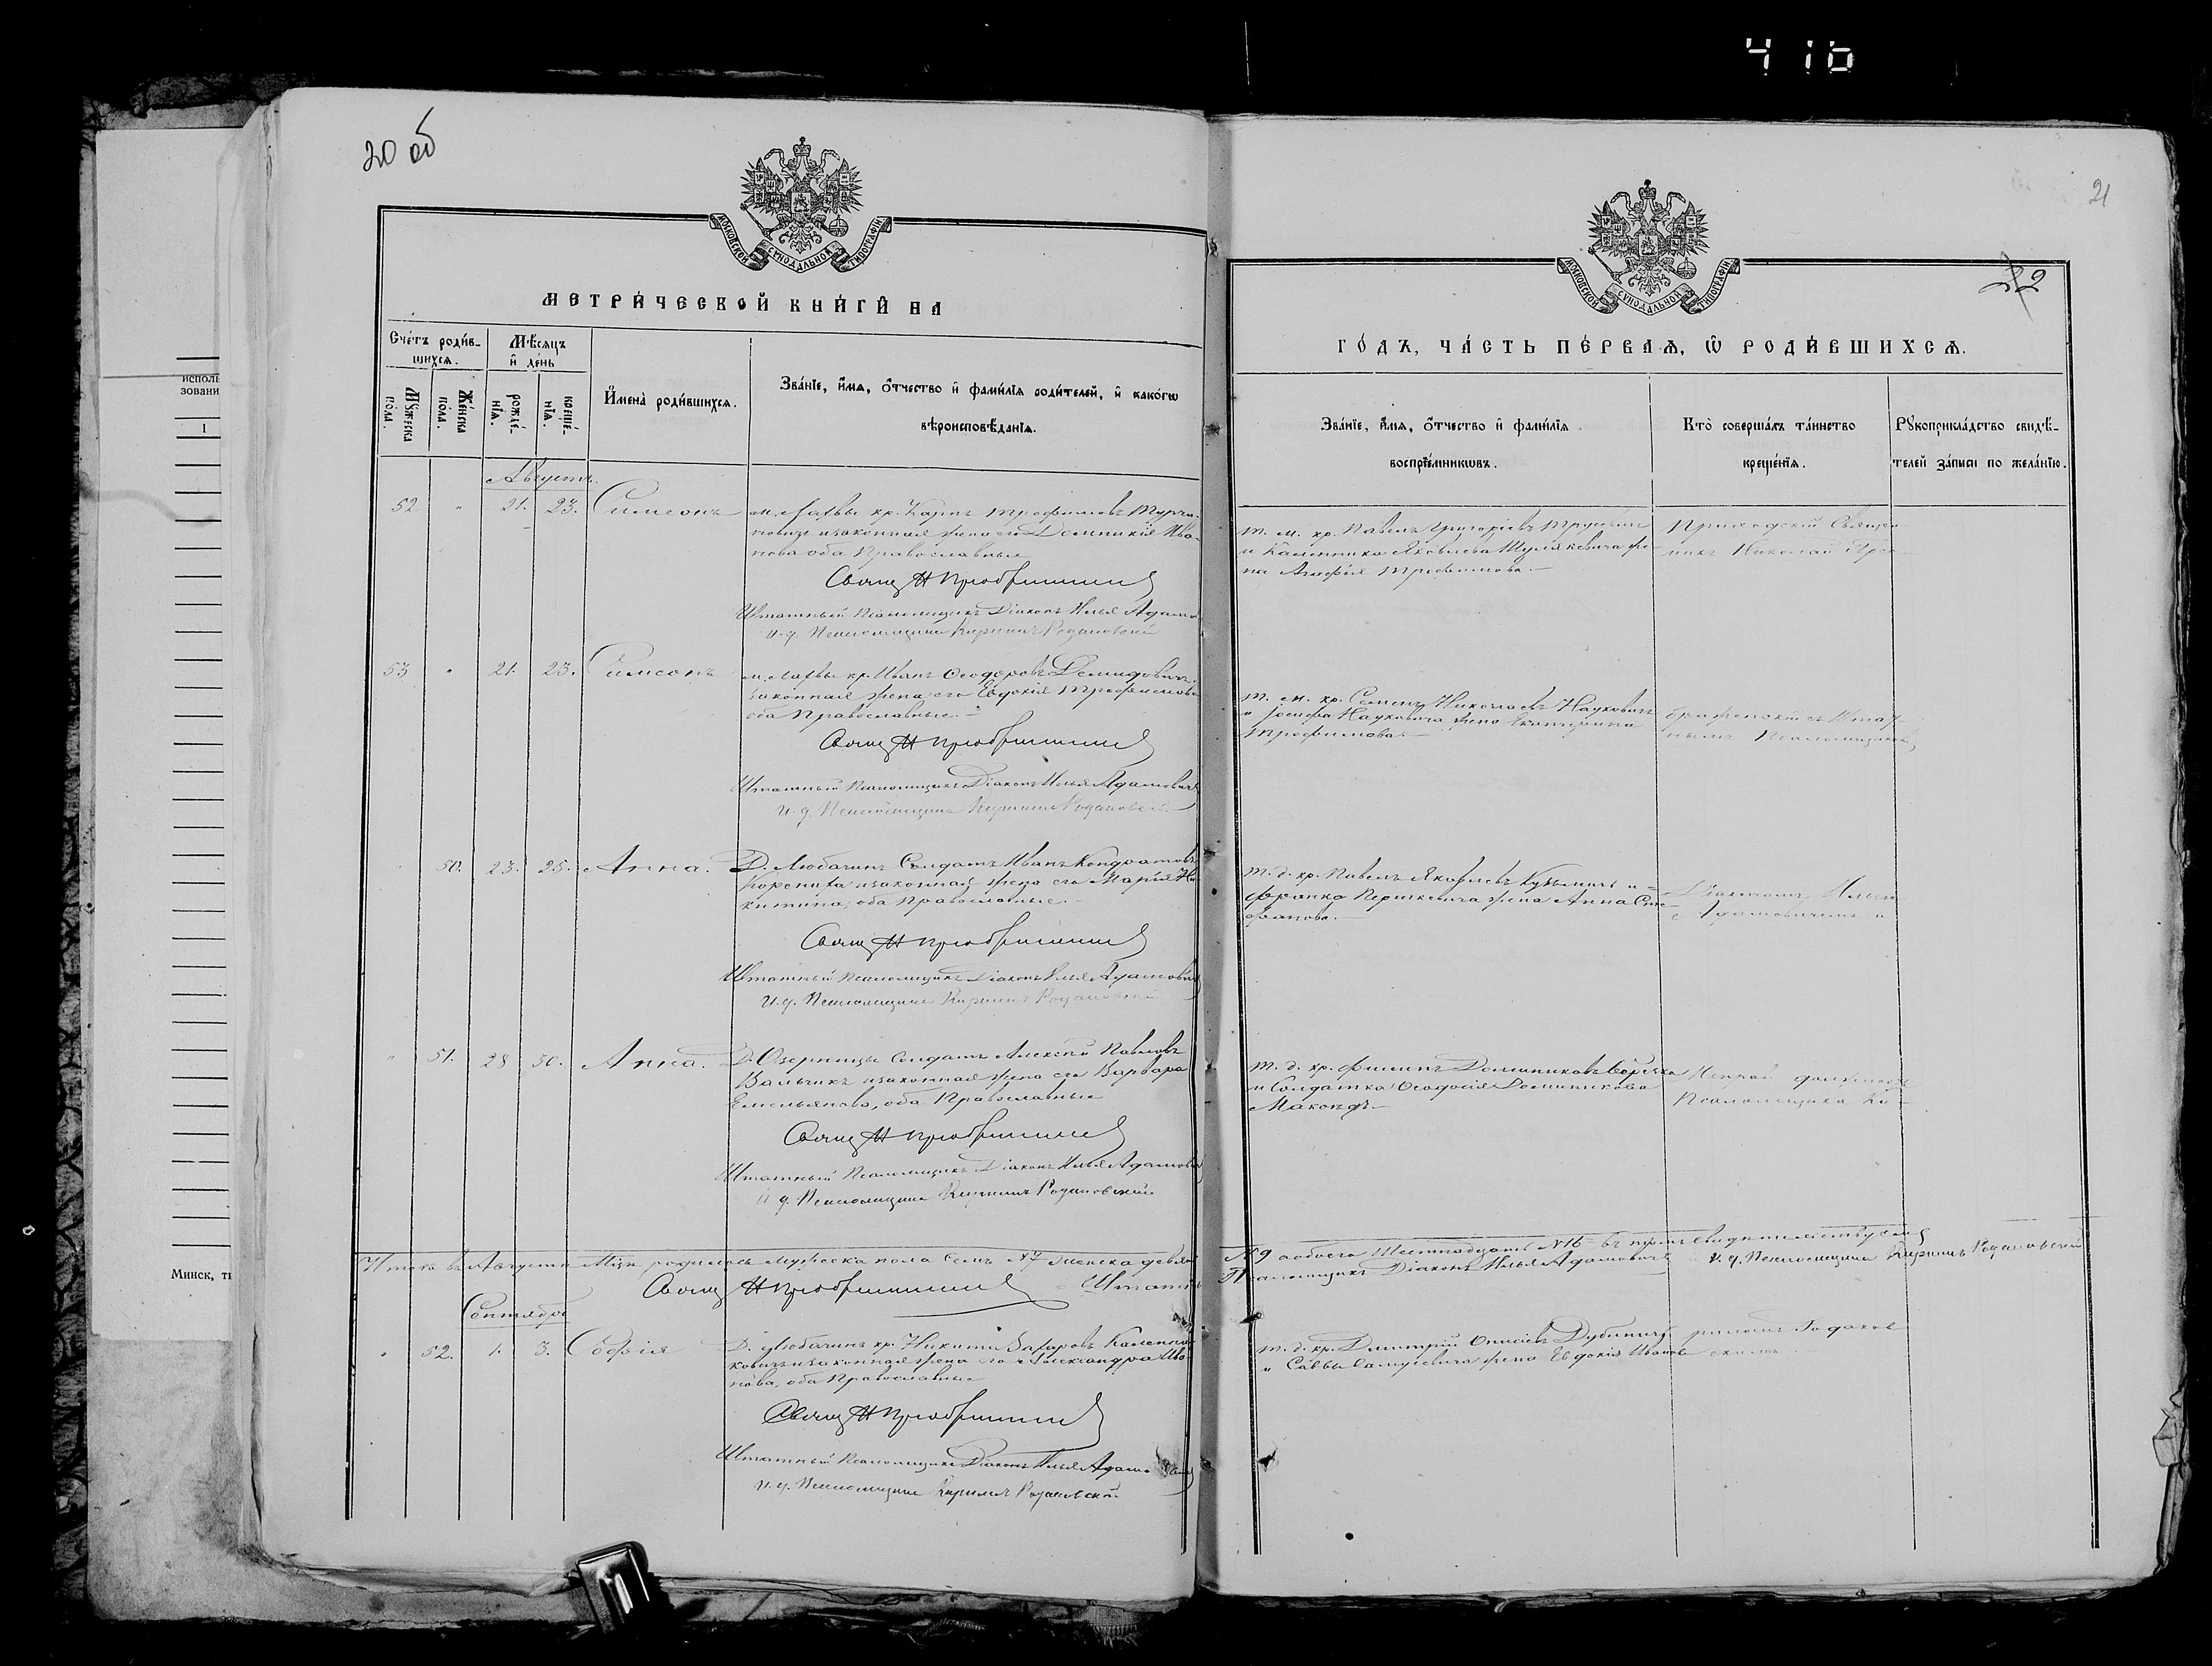 416
20 об
21
22
МОСКОВСКОЙ СѴНОДАЛЬНОЙ ТИПОГРАФІИ
МЕТРИ́ЧЕСКОЙ КНИ́ГИ НА
Сче́тъ роди́в-
шихсѧ.
Мѣ́сѧцъ
и҆ де́нь
Мꙋ́жеска
по́ла.
Же́нска
по́ла.
рожде́-
нїѧ.
креще́-
нїѧ.
И҆мена̀ роди́вшихсѧ.
Зва́нїе, и҆́мѧ, ѻ҆́тчество и҆ фами́лїѧ роди́телей, и҆ како́гѡ
вѣроисповѣ́данїѧ.
Августъ.
52 " 21. 23. Симеонъ
м. Лахвы кр. Карпъ Трофимовъ Турча-
новичъ и законная жена его Домникія Ива-
нова оба Православные
Свящ Н Преображенскій
Штатный Псаломщикъ Діаконъ Илья Адамо
И. д. Псаломщика Кириллъ Родаковскій
53 " 21. 23. Симеонъ
м. Лахвы кр. Иванъ Ѳеодоровъ Демидовичъ
законная жена его Евдокія Трофимова
оба Православные.
Свящ Н Преображенскій
Штатный Псаломщикъ Діаконъ Илья Адамовичъ
И. д. Псаломщика Кириллъ Родаковскій
" 50. 23. 25. Анна.
Д. Любачинъ Солдатъ Иванъ Кондратовъ
и законная жена его Марія Ни-
китина, оба Православные.
Свящ Н Преображенскій
Штатный Псаломщикъ Діаконъ Илья Адамовичъ
И. д. Псаломщика Кириллъ Родаковскій
" 51. 28 30. Анна.
Д. Озерницы Солдатъ Алексѣй Павловъ
Вальчикъ и законная жена его Варвара
Емельянова, оба Православные
Свящ Н Преображенскій
Штатный Псаломщикъ Діаконъ Илья Адамовичъ
И. д. Псаломщика Кириллъ Родаковскій
Итого въ Августѣ Мцѣ родилось мужеска пола семь № 7 женска девять
Свящ Н Преображенскій Штатный
Сентябрь
" 52. 1. 3. Софія
Д. Любачинъ кр. Никита Захаровъ Каленни-
ковичъ и законная жена его Александра Ива-
нова, оба Православные
Свящ Н Преображенскій
Штатный Псаломщикъ Діаконъ Илья Адамовичъ
И. д. Псаломщика Кириллъ Родаковскій
МОСКОВСКОЙ СѴНОДАЛЬНОЙ ТИПОГРАФІИ
ГО́ДЪ, ЧА́СТЬ ПЕ́РВАѦ, Ѽ РОДИ́ВШИХСѦ.
Зва́нїе, и҆́мѧ, ѻ҆́тчество и҆ фами́лїѧ
воспрїе́мникѡвъ.
Кто̀ соверша́лъ та́инство
креще́нїѧ.
Рꙋкоприкла́дство свидѣ́-
телей за́писи по жела́нїю.
т. м. кр. Павелъ Григоріевъ
и Каленника Яковлева Шуляковича же-
на Агафія Трофимова.
Приходскій Священ-
никъ Николай Прео
т. м. кр. Семенъ Николаевъ Наукович
и Іосифа Науковича жена Екатерина
Трофимова.
браженскій съ Штат
нымъ Псаломщикомъ
т. д. кр. Павелъ Яковлевъ Кузьмичъ и
Франка Першкевича жена Анна Сте-
фанова.
Діакономъ Ильею
Адамовичемъ и
т. д. кр. Филипъ Доминиковъ
и Солдатка Ѳеодосія Доминикова
Маконда
Исправ. должность
Псаломщика Ки-
№ 9 а обоего Шестнадцать № 16 – въ томъ свидѣтельствуемъ
Псаломщикъ Діаконъ Илья Адамовичъ И. д. Псаломщика Кириллъ Родаковскій
т. д. кр. Димитрій Дубинич
и Савы Самусевича жена Евдокія Иванова
риломъ Родаков
скимъ
исполь
зовани
1
Минск, ти